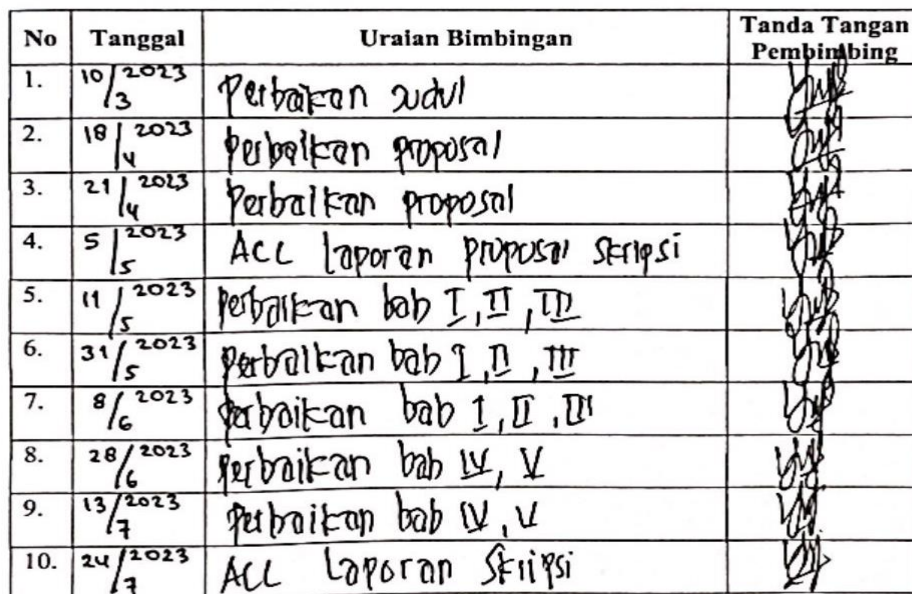 No Tanggal Uraian Bimbingan Tanda Tangan Pembimbing
1. 10/3 2023 Perbaikan Judul
2. 18/4 2023 Perbaikan proposal
3. 21/4 2023 Perbaikan proposal
4. 5/5 2023 ACC laporan proposal skripsi
5. 11/5 2023 Perbaikan bab I, II, III
6. 31/5 2023 Perbaikan bab I, II, III
7. 8/6 2023 Perbaikan bab I, II, III
8. 28/6 2023 Perbaikan bab IV, V
9. 13/7 2023 Perbaikan bab IV, V
10. 24/7 2023 ACC Laporan Skripsi